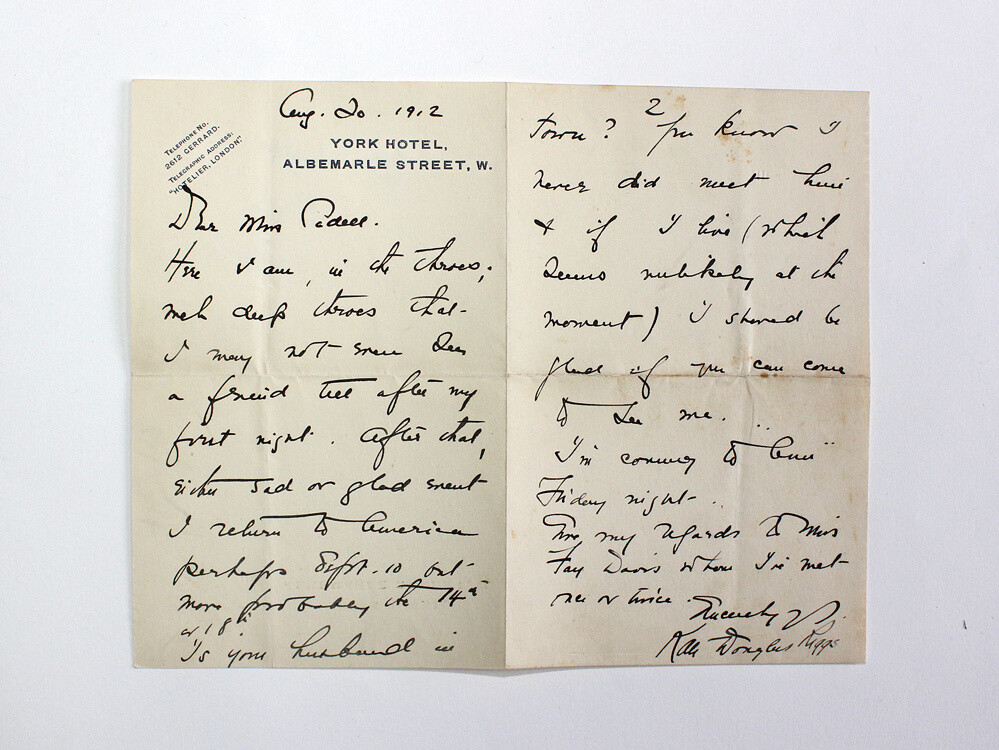 Aug. 20. 1912
TELEPHONE NO.
2612 GERRARD.
TELEGRAPHIC ADDRESS:
"HOTELIER, LONDON."
YORK HOTEL,
ALBEMARLE STREET, W.
Dear Miss
Here I am, in the throes;
such deep throes that
I may not even see
a friend till after my
first night. After that,
either sad or glad event
I return to America
perhaps Sept. 10 but
more probably the 14th
or 18th
Is your husband in
2
town? You know I
never did meet him
& if I live (which
seems unlikely at the
moment) I should be
glad if you can come
to see me...
I'm coming to
Friday night.
Give my regards to Miss
Fay Davis whom I've met
once or twice. Sincerely yrs.
Kate Douglas Riggs